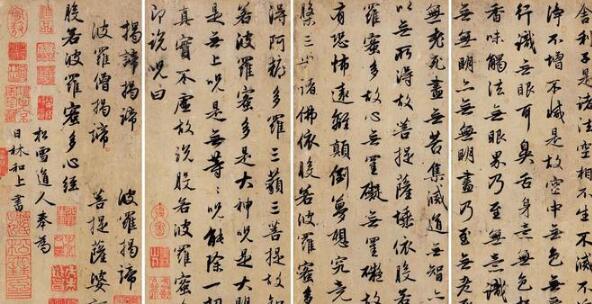 舍利子是諸法空相不生不滅不
淨不增不減是故空中無色無
行識無眼耳鼻舌身意無色
香味觸法無眼界乃至無意識
無無明亦無無明盡乃至無
無老死盡無苦集滅道無智亦
以無所得故菩提薩埵依般若
羅蜜多故心無罣礙無罣礙故
有恐怖遠離顛倒夢想究竟
槃三世諸佛依般若波羅蜜多
得阿耨多羅三藐三菩提故知
若波羅蜜多是大神呪是大明
是無上呪是無等等呪能除一切
真實不虛故說般若波羅蜜
即說呪曰
揭諦揭諦 波羅揭諦
波羅僧揭諦 菩提薩婆
般若波羅蜜多心經
松雪道人奉為
日林和上書